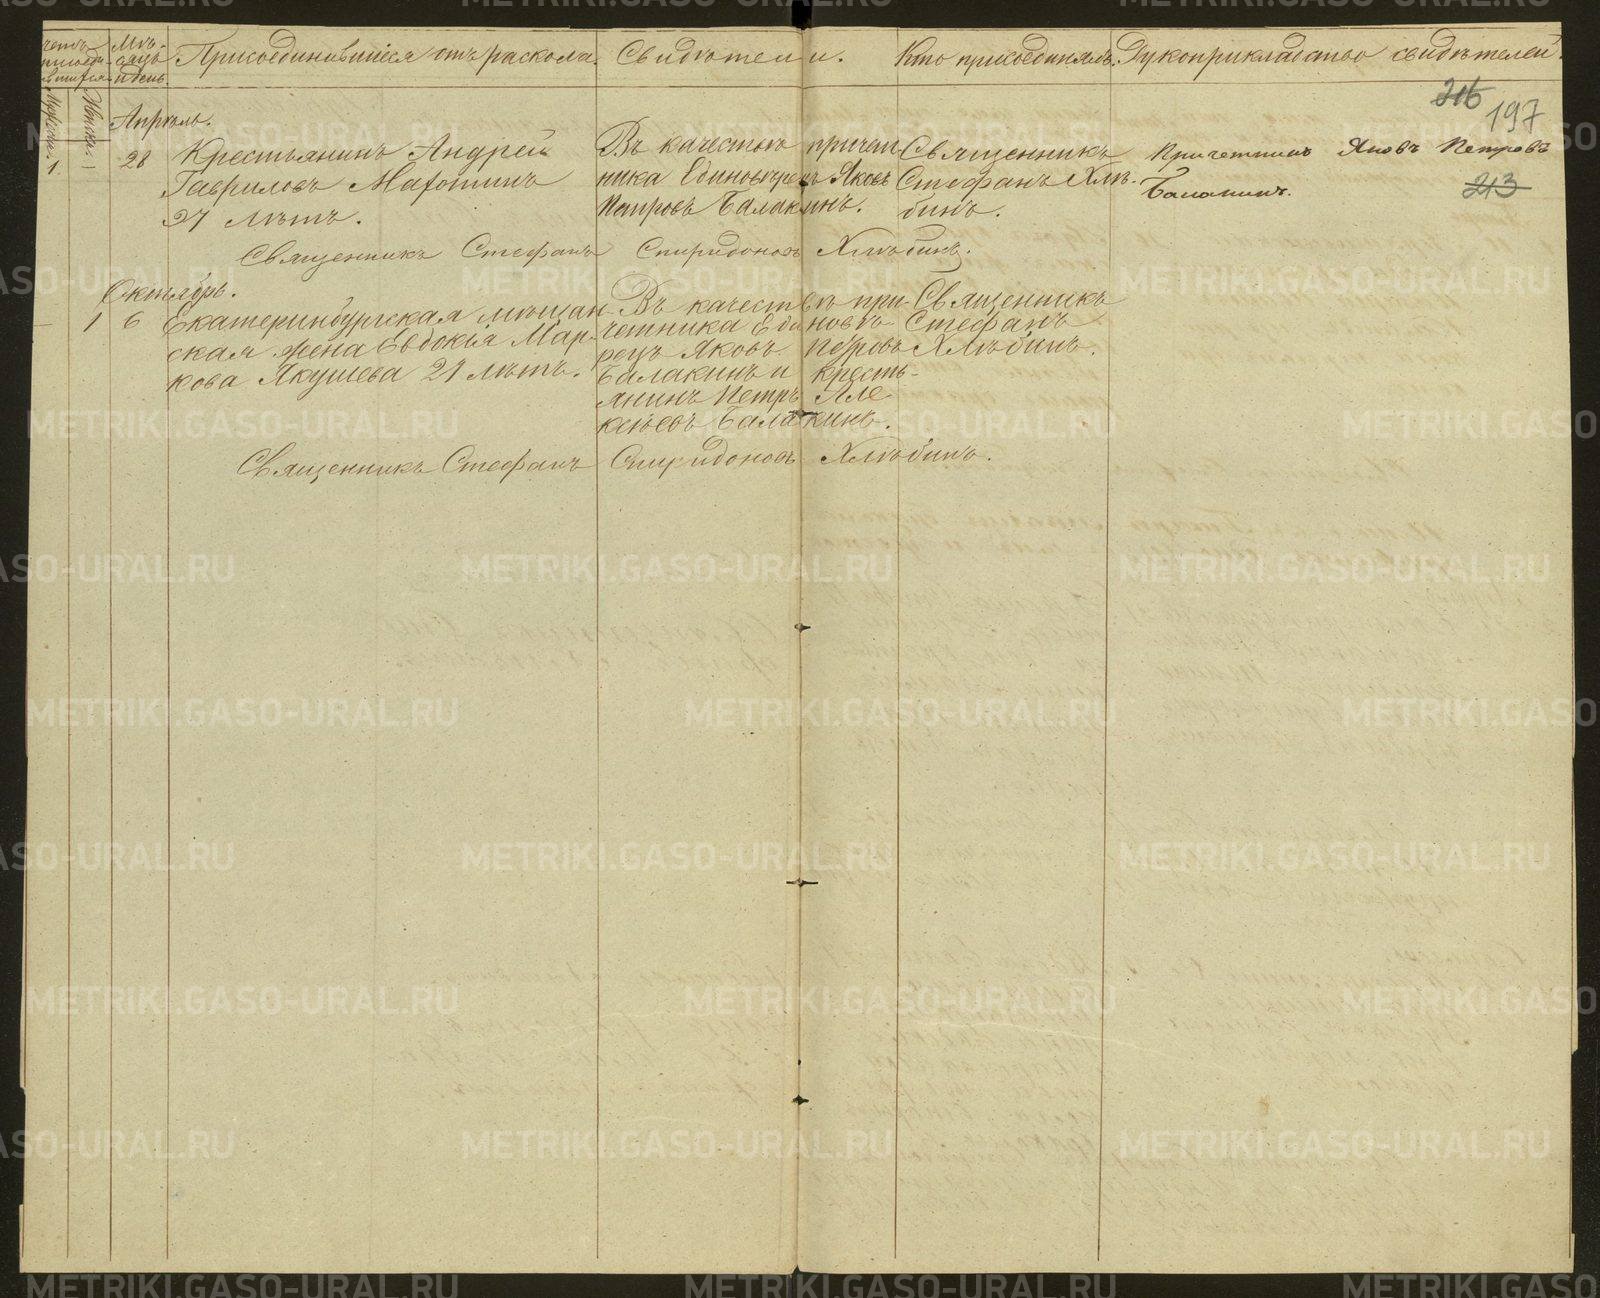 Мѣ-
сяцъ
и день.
Присоединившіеся отъ раскола.
Свидѣтели.
Кто присоединялъ.
Рукоприкладство свидѣтелей.
Мужески.
Женски.
216
197
213
Апрѣль.
1.
28
Крестьянинъ Андрей
Гавриловъ
27 лѣтъ.
Въ качествѣ причет-
ника Единовѣрецъ Яковъ
Петровъ Балакинъ.
Священникъ
Стефанъ Хлѣ-
бинъ.
Причетникъ Яковъ Петровъ
Балакинъ.
Священникъ Стефанъ Спиридоновъ Хлѣбинъ.
Октябрь.
–
1
6
Екатеринбургская мѣщан-
ская жена Евдокія Мар-
кова Якушева 21 лѣтъ.
Въ качествѣ при-
четника Единовѣ-
рецъ Яковъ Петровъ
Балакинъ и кресть-
янинъ Петръ Але
ксѣевъ Балакинъ.
Священникъ
Стефанъ
Хлѣбинъ.
Священникъ Стефанъ Спиридоновъ Хлѣбинъ.
METRIKI.GASO-URAL.RU